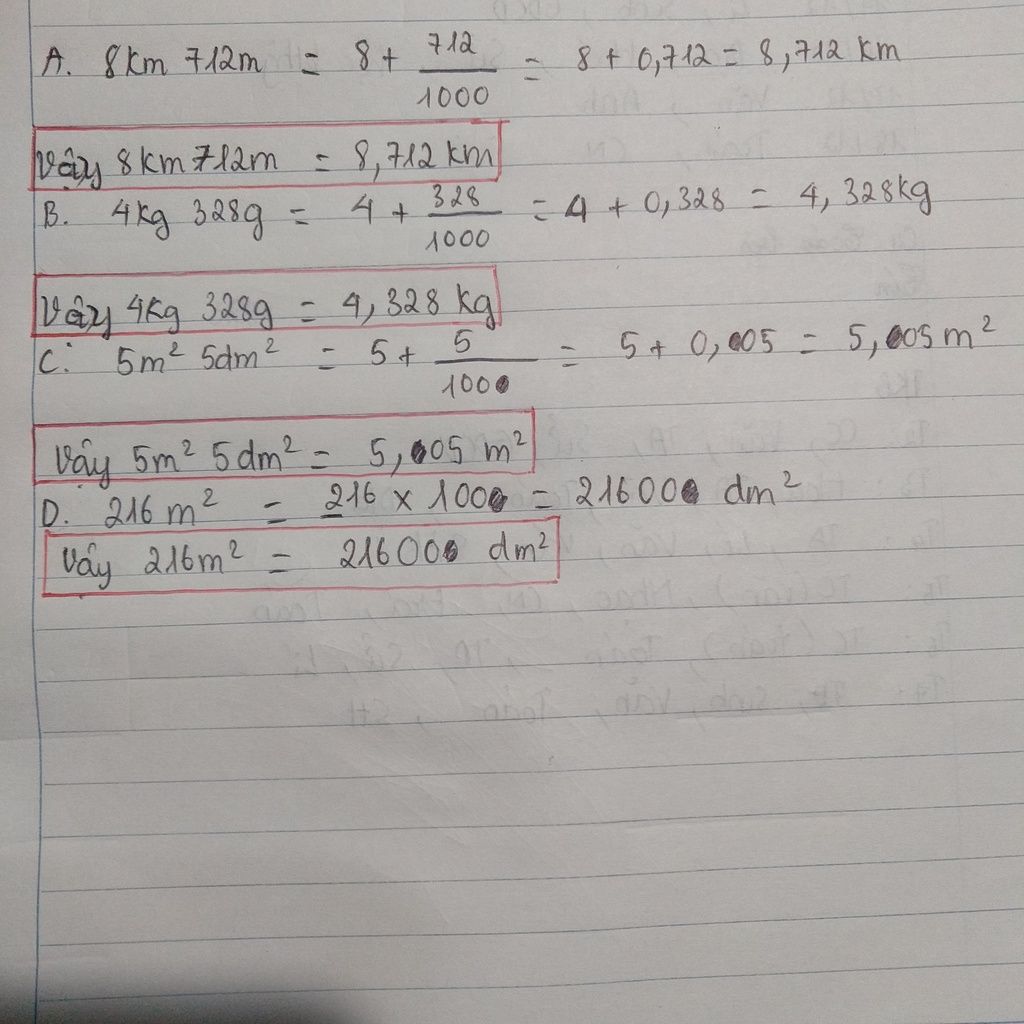 A. 8km 712m = 8 + 712/1000 = 8 + 0,712 = 8,712 km
Vậy 8km 712m = 8,712 km
B. 4kg 328g = 4 + 328/1000 = 4 + 0,328 = 4,328kg
Vậy 4kg 328g = 4,328 kg
C. 5m² 5dm² = 5 + 5/100 = 5 + 0,05 = 5,05 m²
Vậy 5m² 5dm² = 5,05 m²
D. 216 m² = 216 x 100 = 21600 dm²
Vậy 216m² = 21600 dm²